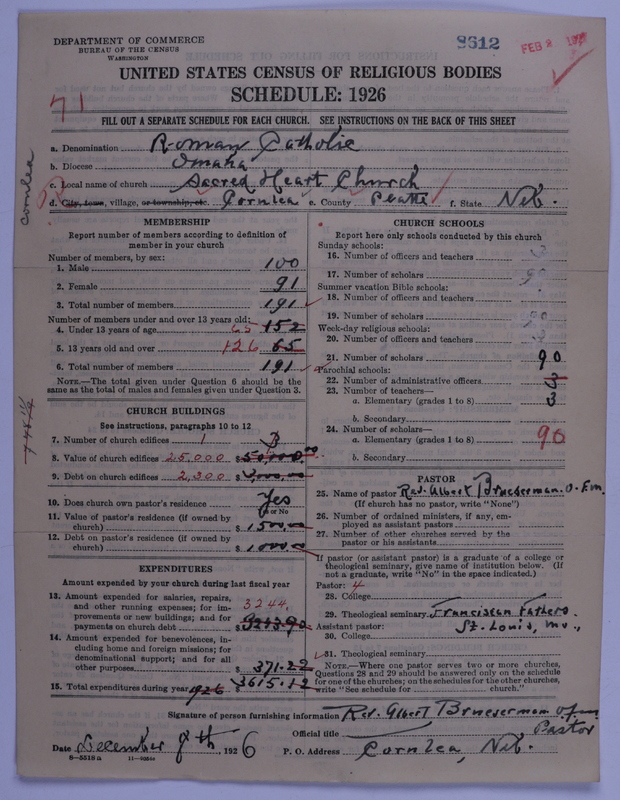 DEPARTMENT OF COMMERCE
BUREAU OF THE CENSUS
WASHINGTON
8612
FEB 2
UNITED STATES CENSUS OF RELIGIOUS BODIES
SCHEDULE: 1926
71
FILL OUT A SEPARATE SCHEDULE FOR EACH CHURCH. SEE INSTRUCTIONS ON THE BACK OF THIS SHEET
a. Denomination Roman Catholic
b. Diocese Omaha
c. Local name of church Sacred Heart Church
d. City, town, village, or township, etc. Cornlea e. County Platte f. State Neb.
Cornlea
MEMBERSHIP
Report number of members according to definition of member in your church
Number of members, by sex:
1. Male 100
2. Female 91
3. Total number of members 191
Number of members under and over 13 years old:
4. Under 13 years of age 65 152
5. 13 years old and over 126 65
6. Total number of members 191
NOTE.—The total given under Question 6 should be the
same as the total of males and females given under Question 3.
CHURCH BUILDINGS
See instructions, paragraphs 10 to 12
7. Number of church edifices 1
8. Value of church edifices 25,000 $
9. Debt on church edifices 2,300 $
10. Does church own pastor's residence Yes
Yes or No
11. Value of pastor's residence (if owned by
church) $ 1500.00
12. Debt on pastor's residence (if owned by
church) $ 1000.00
EXPENDITURES
Amount expended by your church during last fiscal year
13. Amount expended for salaries, repairs,
and other running expenses; for im-
provements or new buildings; and for
payments on church debt 3244. $
14. Amount expended for benevolences, in-
cluding home and foreign missions; for
denominational support; and for all
other purposes $ 371.22
15. Total expenditures during year 1926 $ 3615.12
CHURCH SCHOOLS
Report here only schools conducted by this church
Sunday schools:
16. Number of officers and teachers 3
17. Number of scholars 90
Summer vacation Bible schools:
18. Number of officers and teachers
19. Number of scholars
Week-day religious schools:
20. Number of officers and teachers
21. Number of scholars 90
Parochial schools:
22. Number of administrative officers 3
23. Number of teachers—
a. Elementary (grades 1 to 8) 3
b. Secondary
24. Number of scholars—
a. Elementary (grades 1 to 8) 90
b. Secondary
PASTOR
25. Name of pastor Rev. Albert Brueserman. O.F.M.
(If church has no pastor, write "None")
26. Number of ordained ministers, if any, em-
ployed as assistant pastors
27. Number of other churches served by the
pastor or his assistants
If pastor (or assistant pastor) is a graduate of a college or
theological seminary, give name of institution below. (If
not a graduate, write "No" in the space indicated.)
Pastor: 4
28. College
29. Theological seminary Franciscan Fathers.
Assistant pastor: St. Louis, Mo.,
30. College
31. Theological seminary
NOTE.—Where one pastor serves two or more churches,
Questions 28 and 29 should be answered only on the schedule
for one of the churches; on the schedules for the other churches,
write "See schedule for church."
Signature of person furnishing information Rev. Albert Brueserman O.F.M.
Official title Pastor
Date December 8th, 1926 P. O. Address Cornlea, Neb.
8—5518a 11—9055a